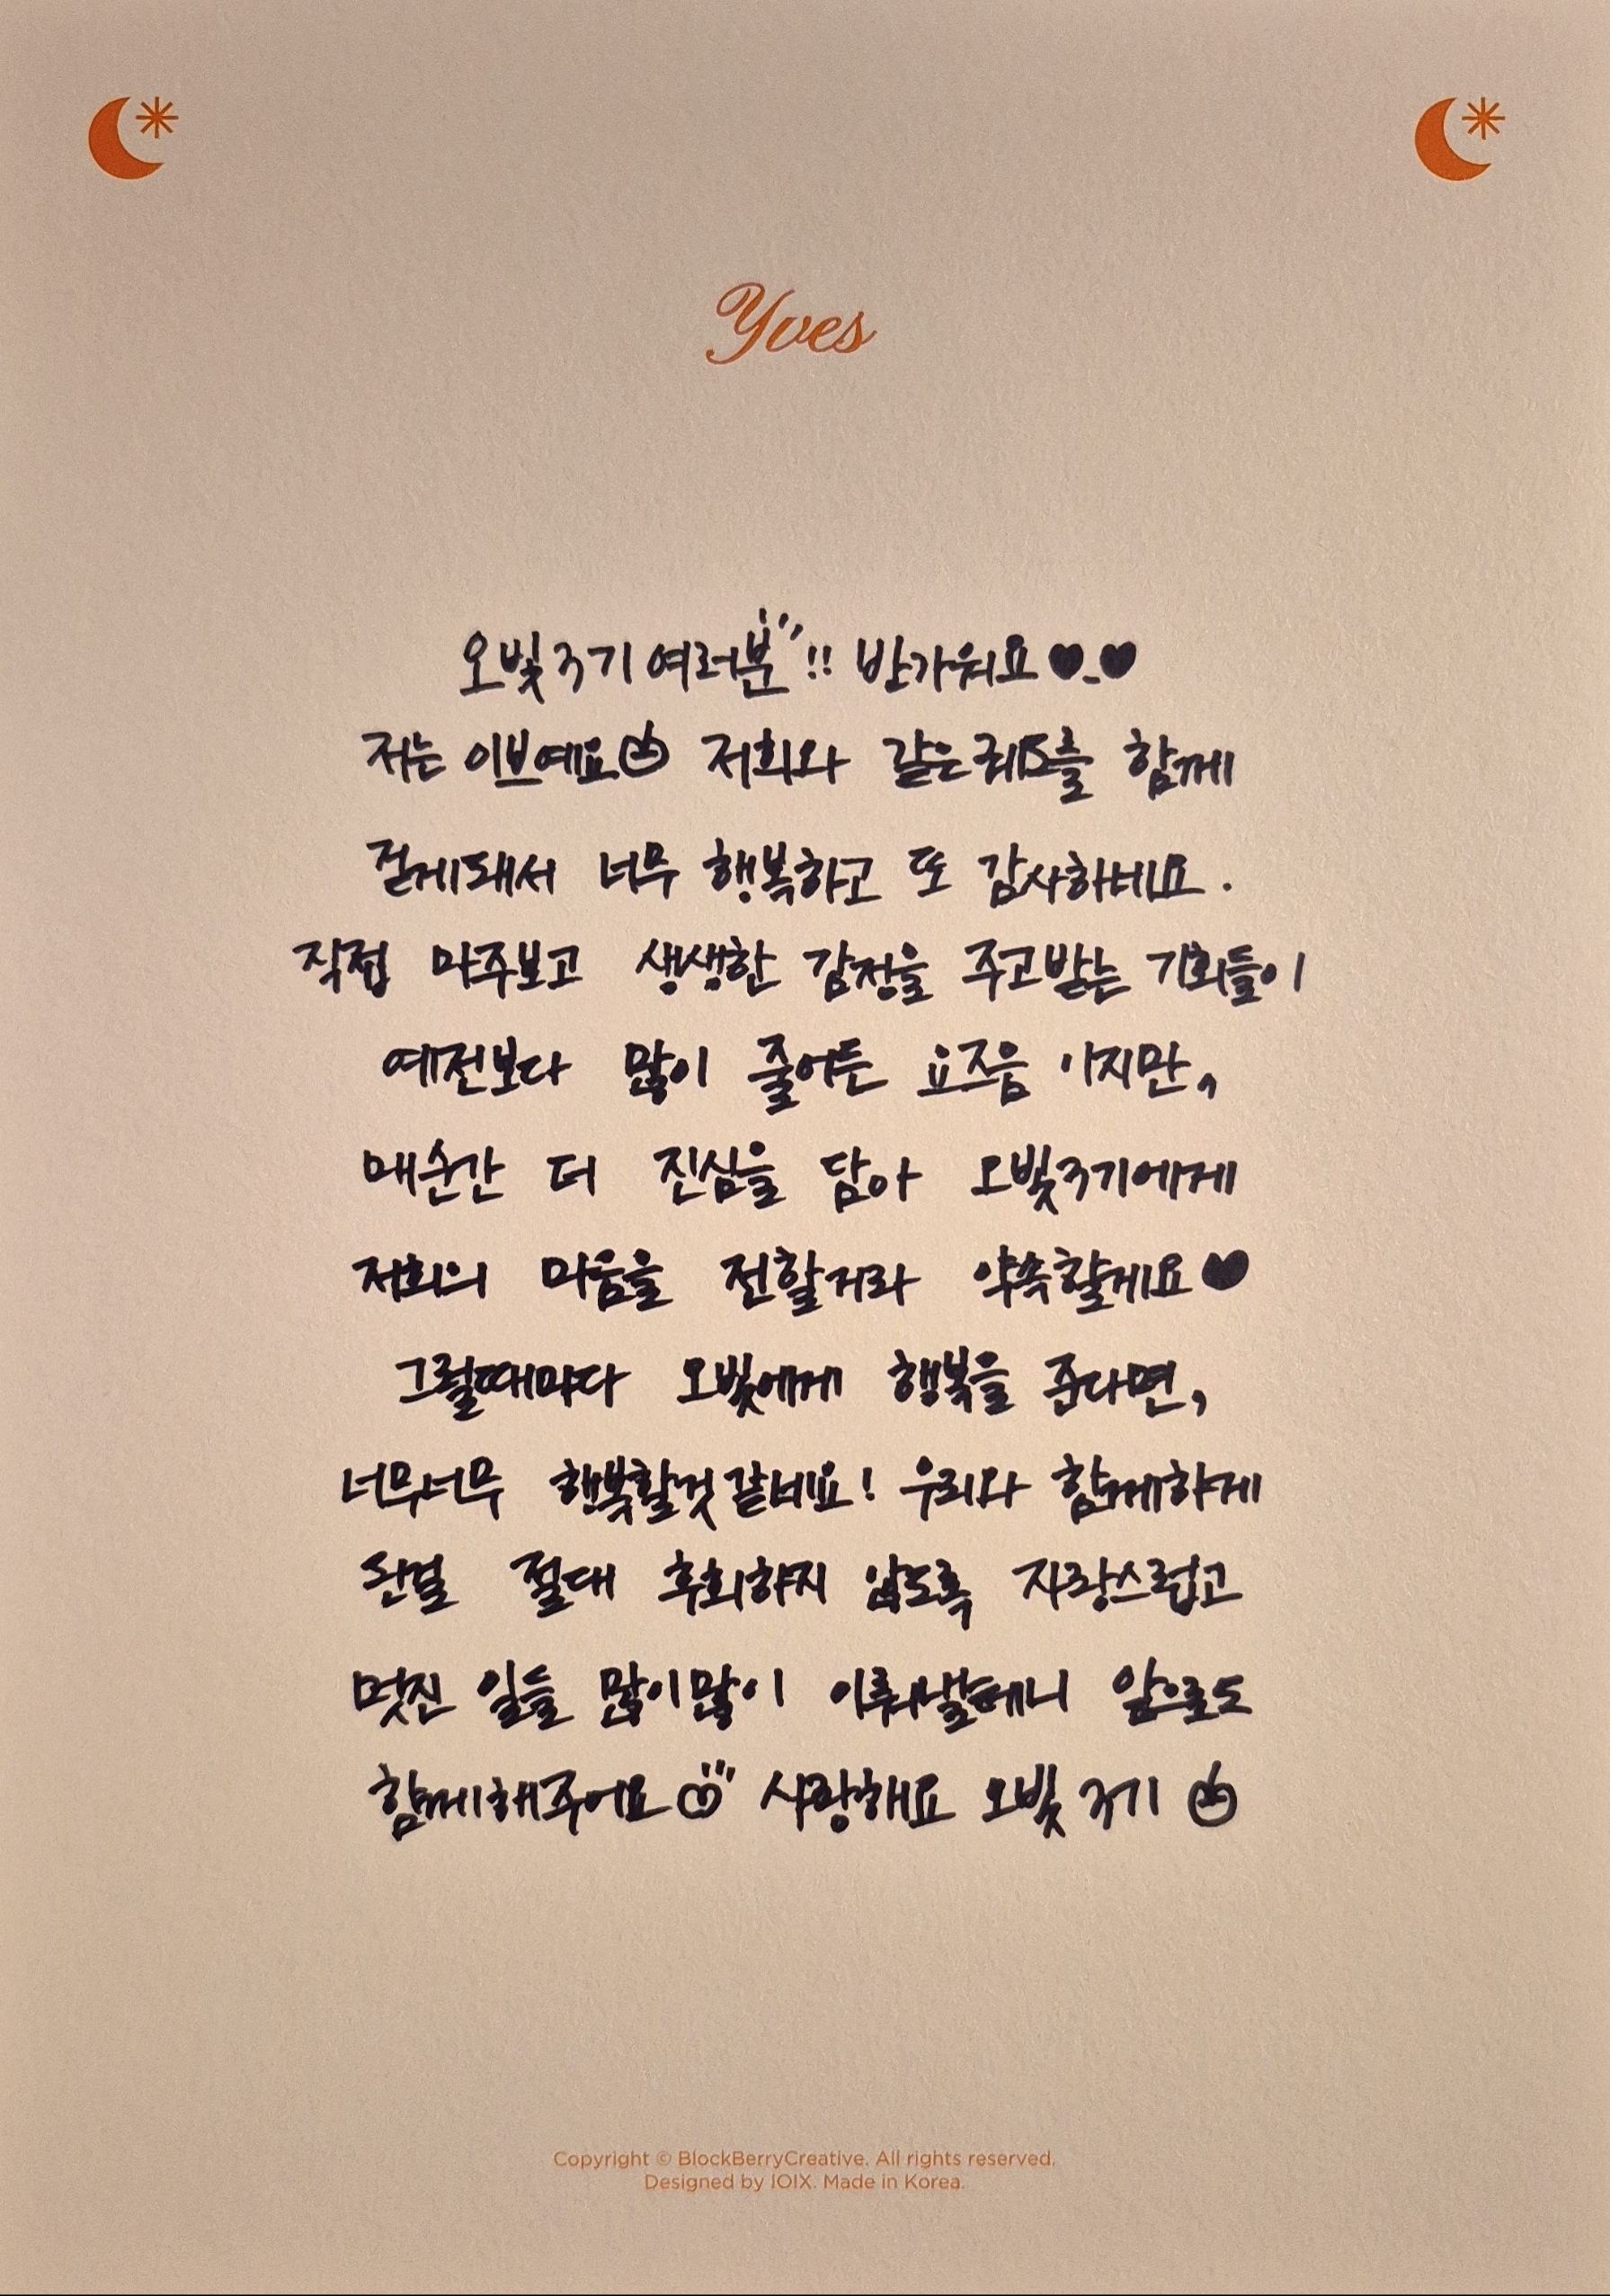 Yves
오빛 3기 여러분!! 반가워요♥_♥
저는 이브예요 저희와 같은 궤도를 함께
걷게돼서 너무 행복하고 또 감사하네요.
직접 마주보고 생생한 감정을 주고받는 기회들이
예전보다 많이 줄어든 요즈음 이지만,
매순간 더 진심을 담아 오빛3기에게
저희의 마음을 전할거라 약속할게요♥
그럴때마다 오빛에게 행복을 준다면,
너무너무 행복할것 같네요! 우리와 함께하게
된걸 절대 후회하지 않도록 자랑스럽고
멋진 일들 많이많이 이뤄낼테니 앞으로도
함께해주어요 사랑해요 오빛 3기
Copyright © BlockBerryCreative. All rights reserved.
Designed by IOIX. Made in Korea.